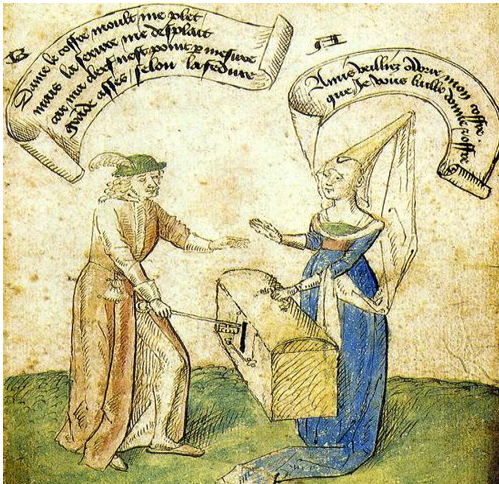 B
Dame le coffre moult me plet
mais la serure me desplait
car ma clef nest point a mesure
grande asses selon la serure
A
Amis veilliez mon coffre
que Je vous baille